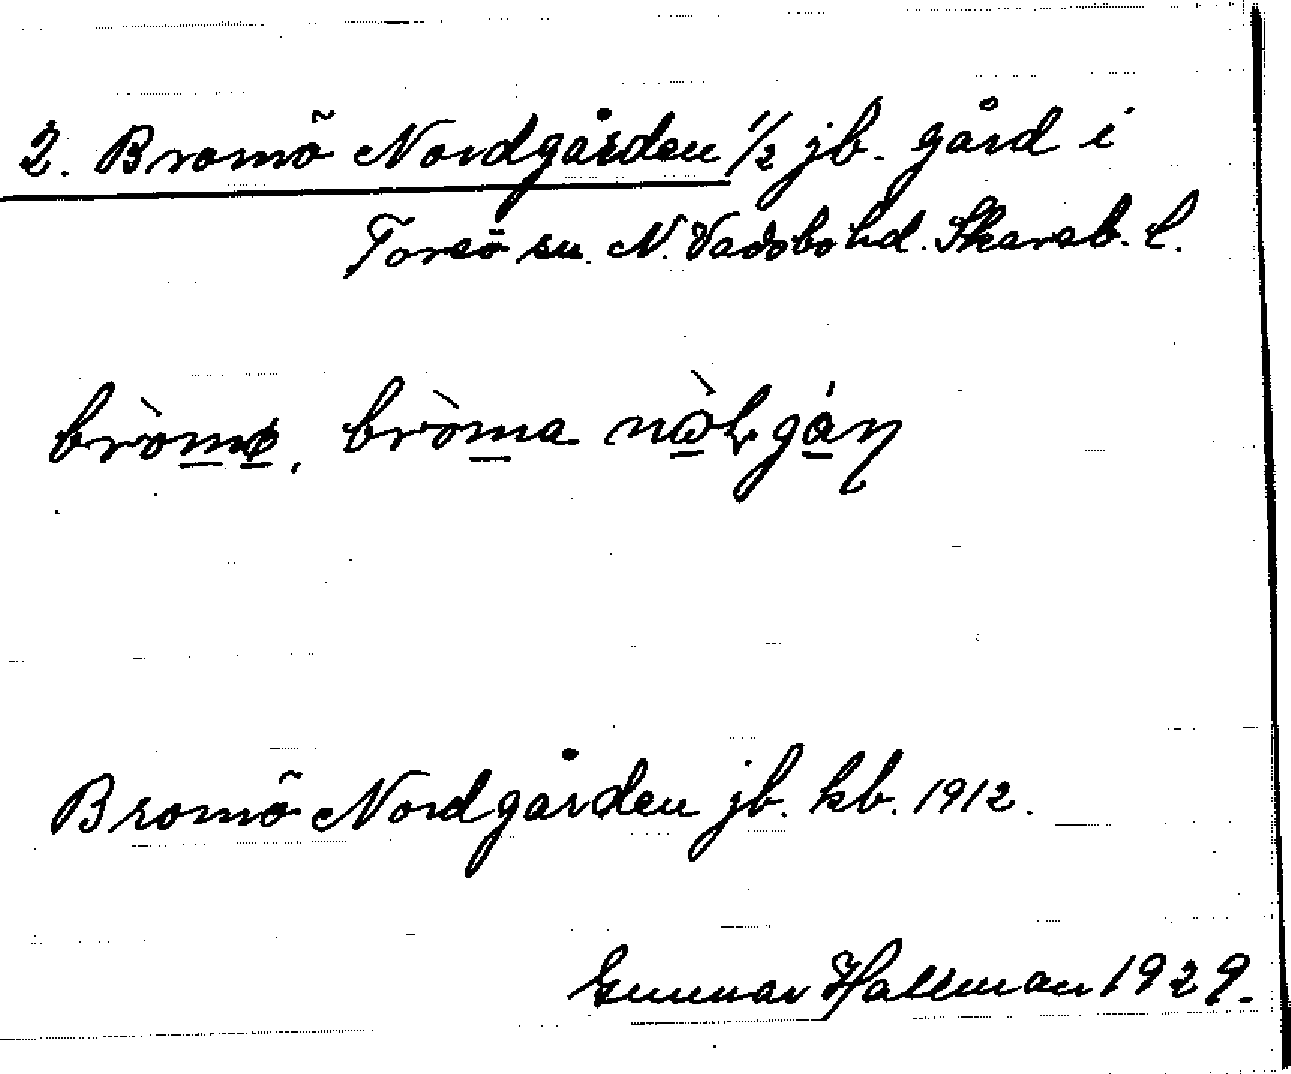 2. Bromö Nordgården 1/2 jb. gård i
Torsö sn. N. Vadsbo hd. Skarab. l.
bròmø, bròma nòlgán
Bromö Nordgården jb. kb. 1912.
Gunnar Hallman 1929.